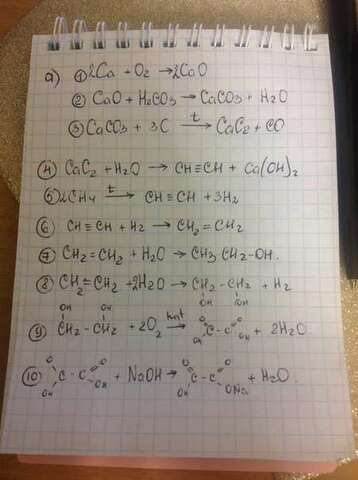 а) ① 2Ca + O₂ → 2CaO
② CaO + H₂CO₃ → CaCO₃ + H₂O
③ CaCO₃ + 3C t→ CaC₂ + CO
④ CaC₂ + H₂O → CH≡CH + Ca(OH)₂
⑤ 2CH₄ t→ CH≡CH + 3H₂
⑥ CH≡CH + H₂ → CH₂=CH₂
⑦ CH₂=CH₂ + H₂O → CH₃-CH₂-OH.
⑧ CH₂=CH₂ + 2H₂O → CH₂-CH₂ + H₂
OH OH
OH OH
⑨ CH₂-CH₂ + 2O₂ kat→ C-C + 2H₂O.
O O
OH OH
O O
⑩ C-C + NaOH → C-C + H₂O.
OH OH
O O
OH ONa